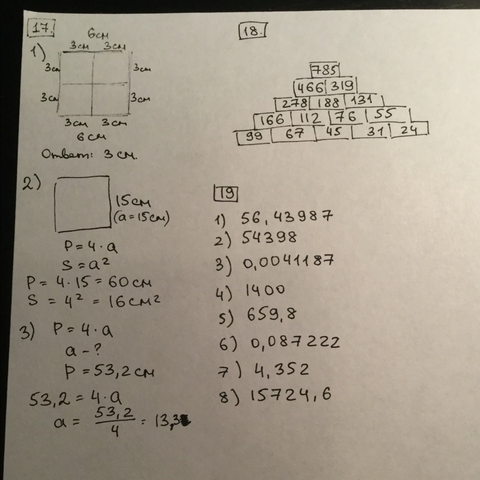 17.
1)
6см
3см 3см
3см 3см
3см 3см
3см 3см
6см
Ответ: 3 см.
2)
15см
(a=15см)
P=4·a
S=a²
P = 4·15 = 60 см
S = 4² = 16 см²
3) P=4·a
a-?
P=53,2 см
53,2 = 4·a
a = 53,2/4 = 13,3
18.
785
466 319
278 188 131
166 112 76 55
99 67 45 31 24
19
1) 56,43987
2) 54398
3) 0,0041187
4) 1400
5) 659,8
6) 0,087222
7) 4,352
8) 15724,6